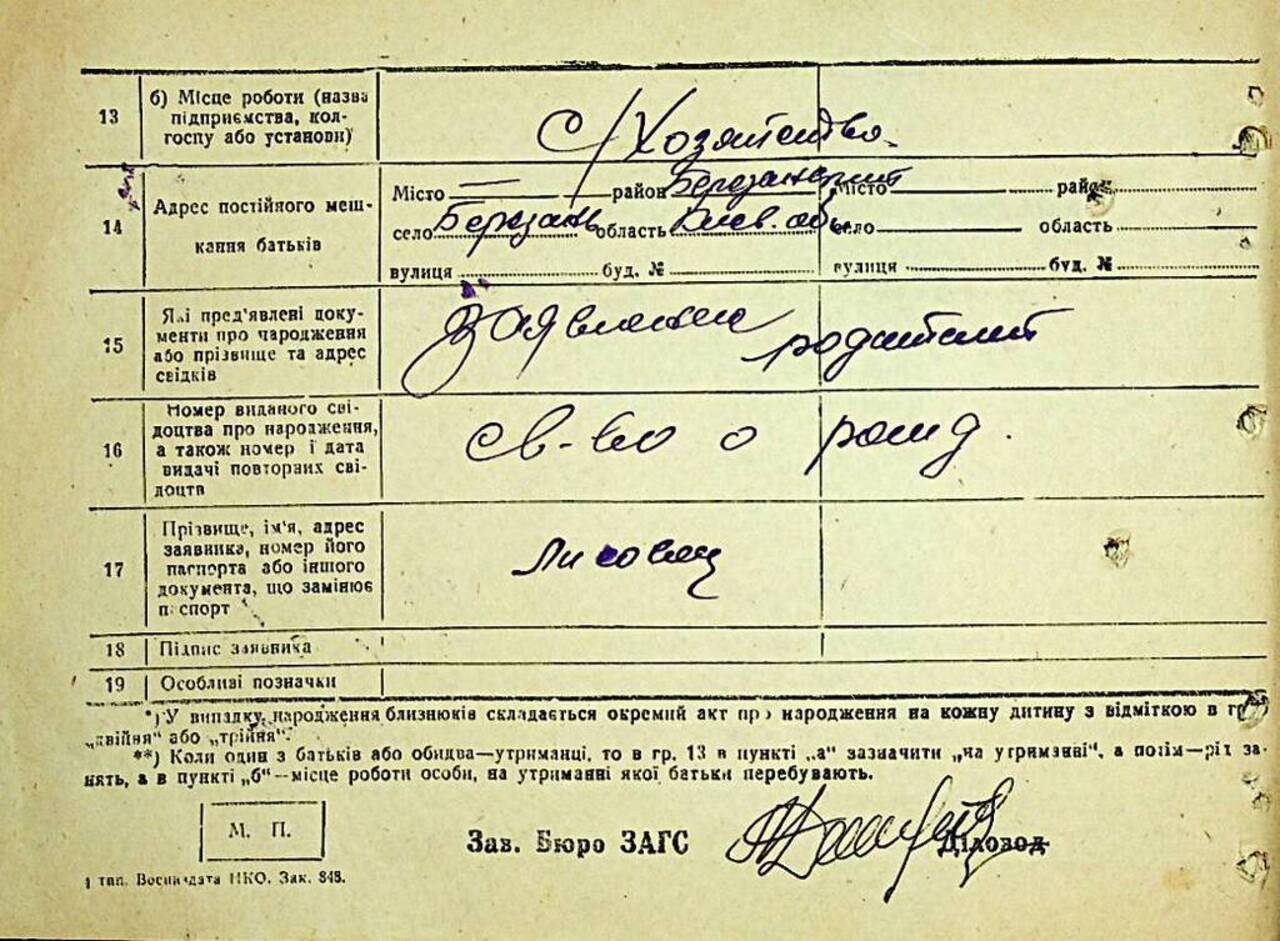 13
б) Місце роботи (назва
підприємства, кол-
госпу або установи)
С/Хозяйство.
14
Адрес постійного меш-
кання батьків
Місто — район Березанский Місто район
село Березань область Киев. об село область
вулиця буд. № вулиця буд. №
15
Які пред'явлені доку-
менти про народження
або прізвище та адрес
свідків
Заявление родителей
16
Номер виданого сві-
доцтва про народження,
а також номер і дата
видачі повторних сві-
доцтв
св-во о рожд.
17
Прізвище, ім'я, адрес
заявника, номер його
паспорта або іншого
документа, що замінює
паспорт
Лисовец
18 Підпис заявника
19 Особливі позначки
*) У випадку народження близнюків складається окремий акт про народження на кожну дитину з відміткою в гр.
„двійня“ або „трійня“.
**) Коли один з батьків або обидва—утриманці, то в гр. 13 в пункті „а“ зазначити „на утриманні“, а потім—рід за-
нять, а в пункті „б“—місце роботи особи, на утриманні якої батьки перебувають.
М. П.
Зав. Бюро ЗАГС Діловод
1 тип. Воениздата НКО. Зак. 848.